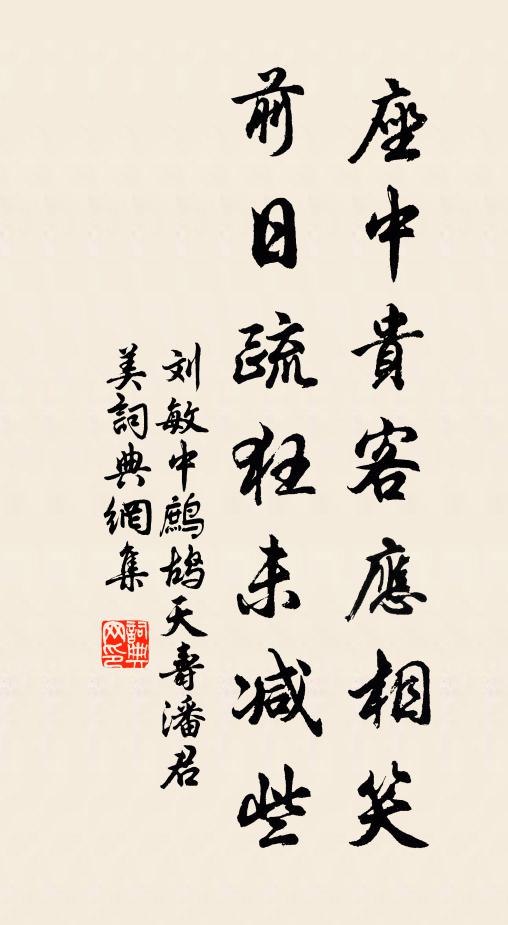 座中貴客應相笑
前日疏狂未減些
刘敏中鷓鴣天壽潘君
美詞典網集
詞典网印